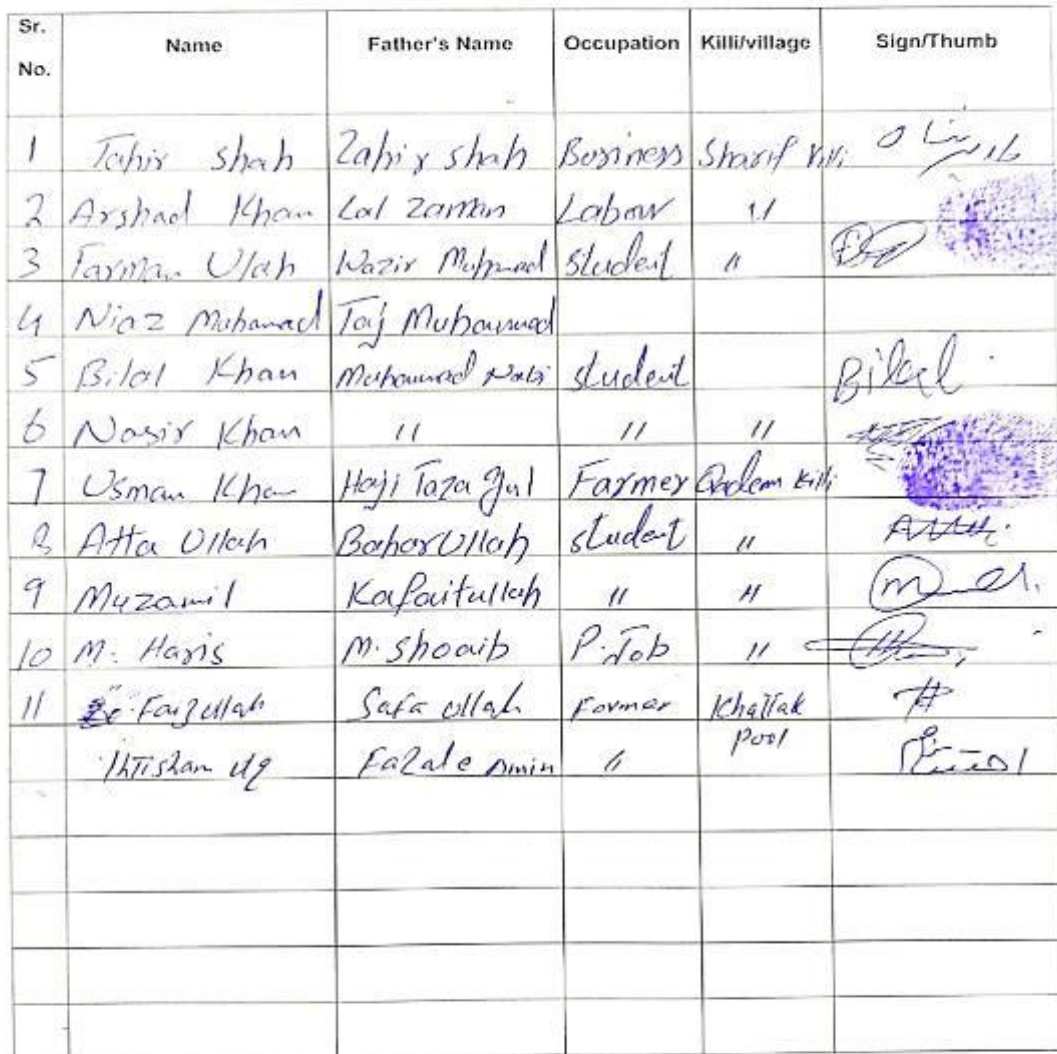 Sr. No. Name Father's Name Occupation Killi/village Sign/Thumb
1 Tahir shah Zahir shah Business Sharif Killi طاہر شاہ
2 Arshad Khan Lal Zaman Labour "
3 Farman Ulah Wazir Muhmad student "
4 Niaz Muhamad Taj Muhammad
5 Bilal Khan Muhammad Nabi student Bilal
6 Nasir Khan " " "
7 Usman Khan Haji Taza Gul Farmer Killi
8 Atta Ullah BaharUllah student "
9 Muzamil Kafaitullah " "
10 M. Haris M. shoaib P. Job "
11 Faizullah Safa ullah Farmer Khattak Pool
Ihtisham Fazale Amin "